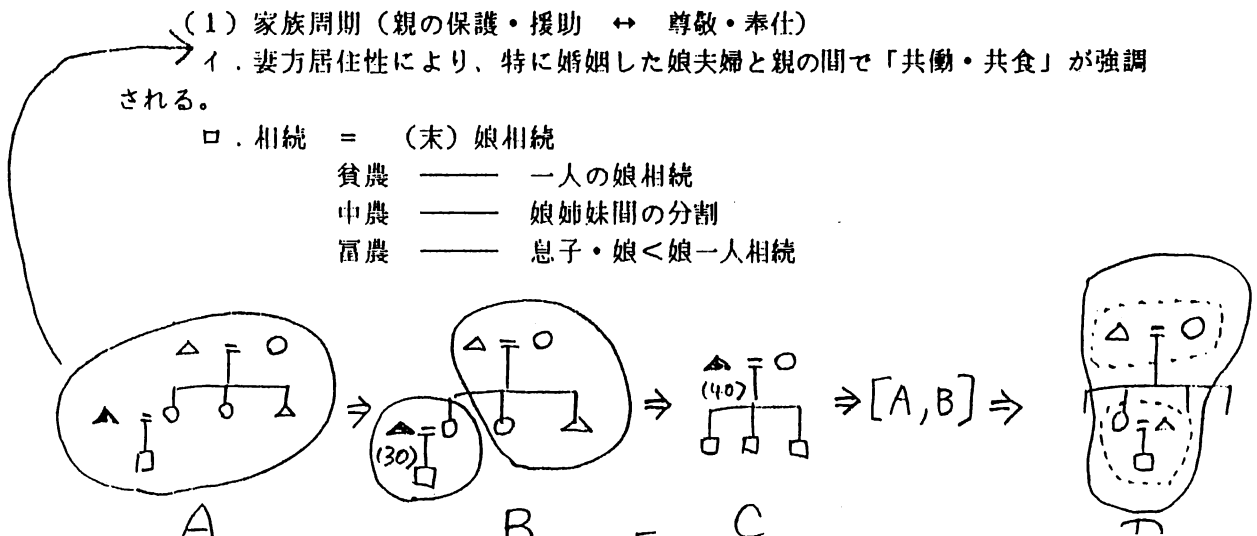 (1) 家族周期（親の保護・援助 ↔ 尊敬・奉仕）
イ．妻方居住性により、特に婚姻した娘夫婦と親の間で「共働・共食」が強調
される。
ロ．相続 ＝ （末）娘相続
貧農 ―― 一人の娘相続
中農 ―― 娘姉妹間の分割
富農 ―― 息子・娘＜娘一人相続
(30) (40) ⇒[A,B]⇒
A B - C D